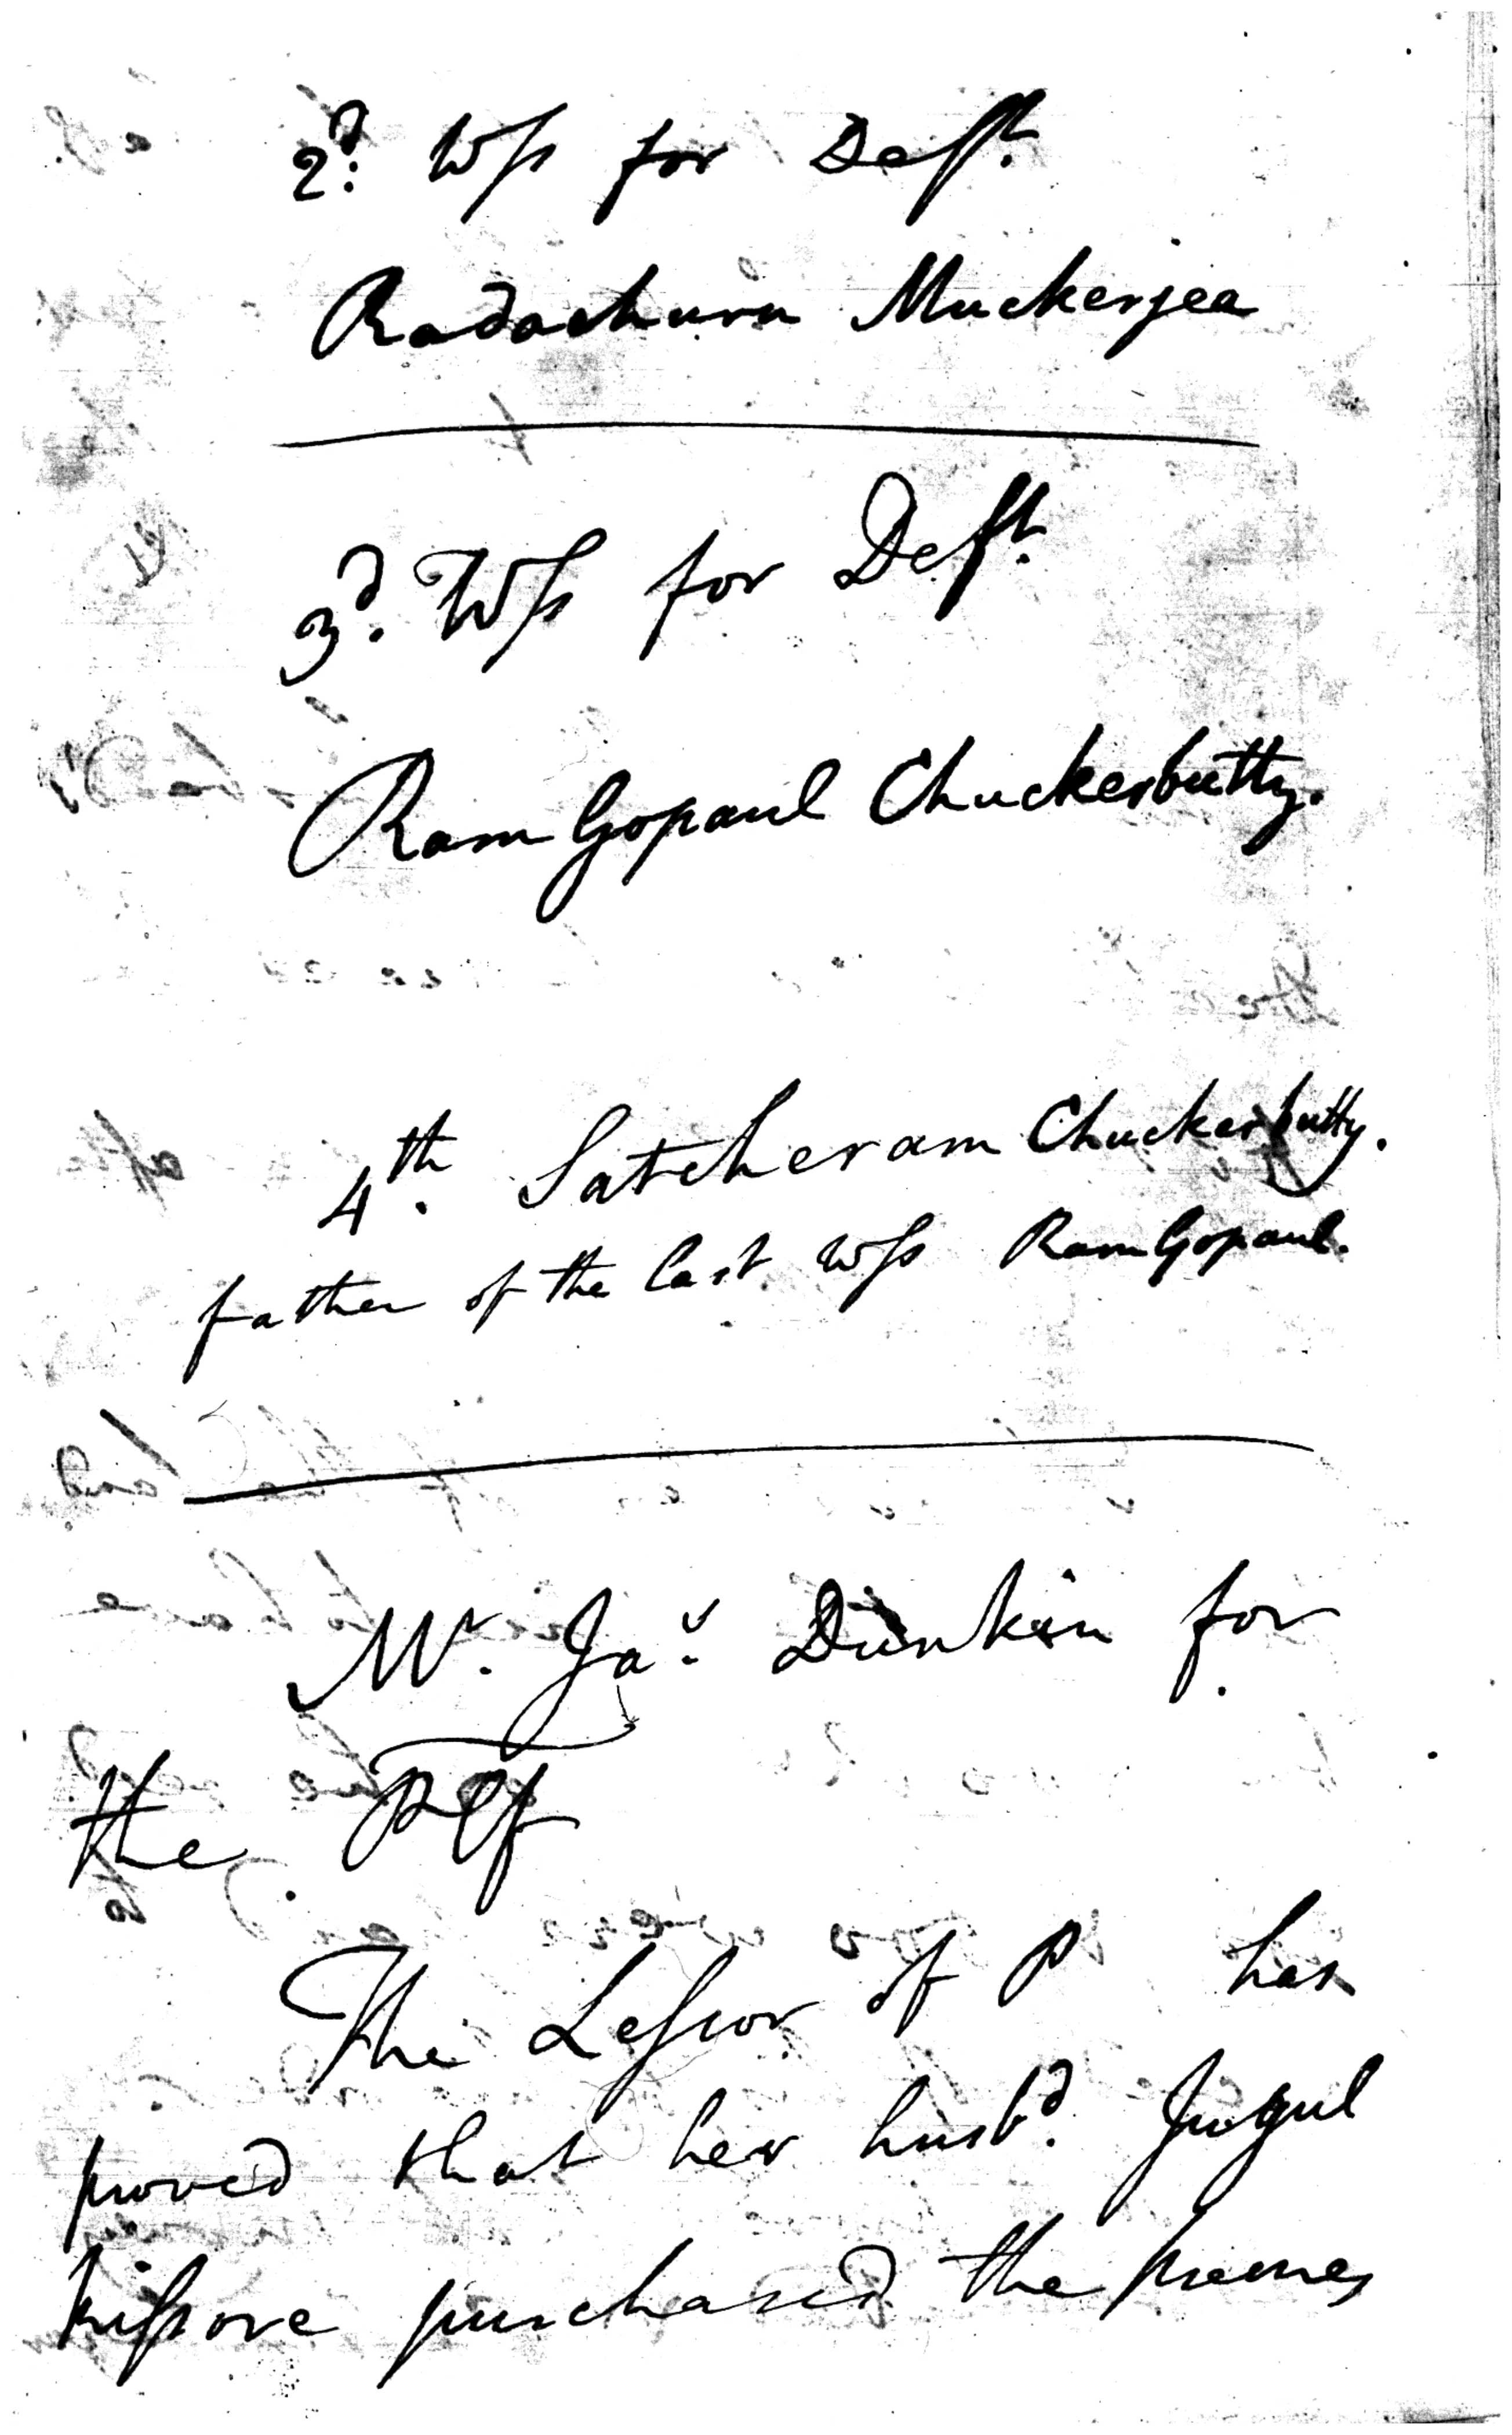 2d. Wss for Deft.
Radachurn Muckerjea
3d. Wss for Deft.
Ram Gopaul Chuckerbutty.
4th. Satcheram Chuckerbutty.
father of the last Wss Ram Gopaul.
Mr. Jas. Dunkin for
the Plf
The Lessor of P has
proved that her husbd. Jugul
kissore purchased the